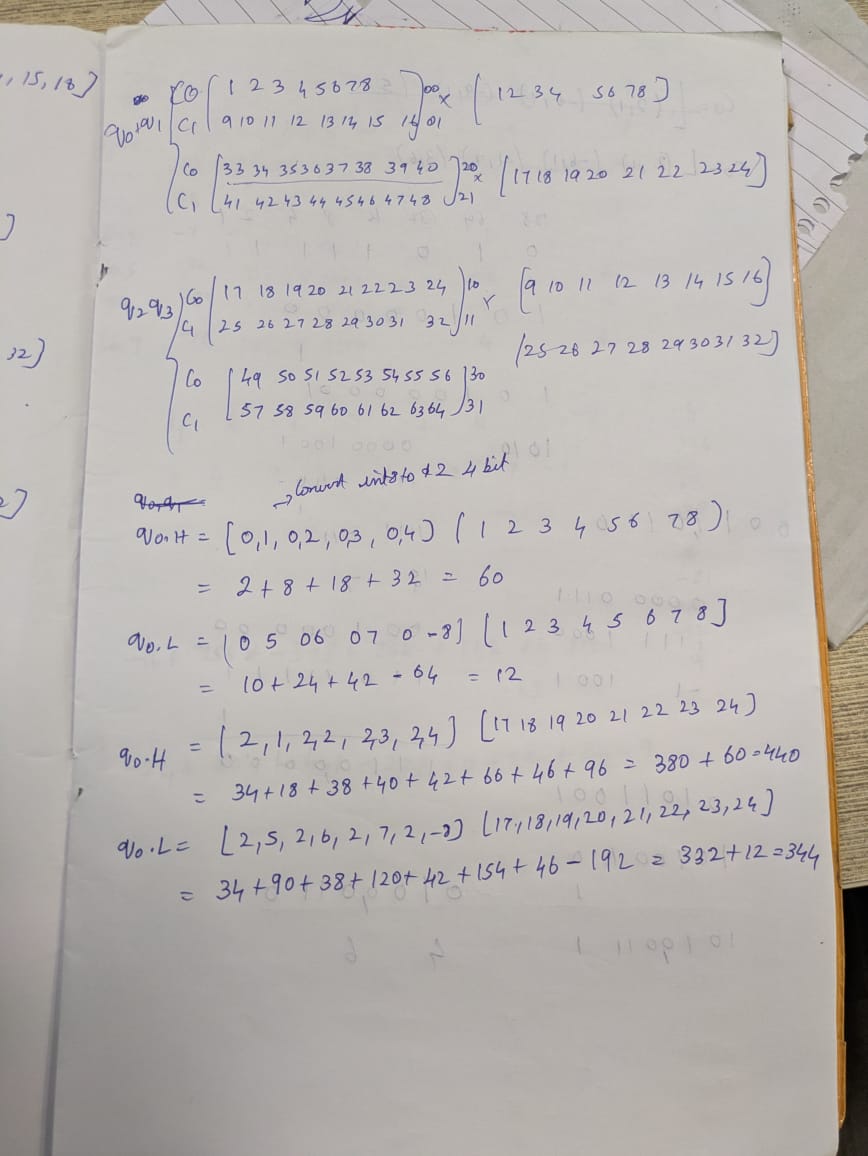 , 15, 18]
q0+q1 C0 [1 2 3 4 5 6 7 8]00 x [1 2 3 4 5 6 7 8]
C1 [9 10 11 12 13 14 15 16]01
C0 [33 34 35 36 37 38 39 40]20 x [17 18 19 20 21 22 23 24]
C1 [41 42 43 44 45 46 47 48]21
]
q2q3 C0 [17 18 19 20 21 22 23 24]10 x [9 10 11 12 13 14 15 16]
C1 [25 26 27 28 29 30 31 32]11
32]
[25 26 27 28 29 30 31 32]
C0 [49 50 51 52 53 54 55 56]30
C1 [57 58 59 60 61 62 63 64]31
]
→ Convert int8 to 2 4 bit
q0.H = [0,1, 0,2, 0,3, 0,4] [1 2 3 4 5 6 7 8]
= 2+8+18+32 = 60
q0.L = [0 5 0 6 0 7 0 -8] [1 2 3 4 5 6 7 8]
= 10+24+42-64 = 12
q0.H = [2,1, 2,2, 2,3, 2,4] [17 18 19 20 21 22 23 24]
= 34+18+38+40+42+66+46+96 = 380+60=440
q0.L = [2,5, 2,6, 2,7, 2,-8] [17,18,19,20,21,22,23,24]
= 34+90+38+120+42+154+46-192 = 332+12=344